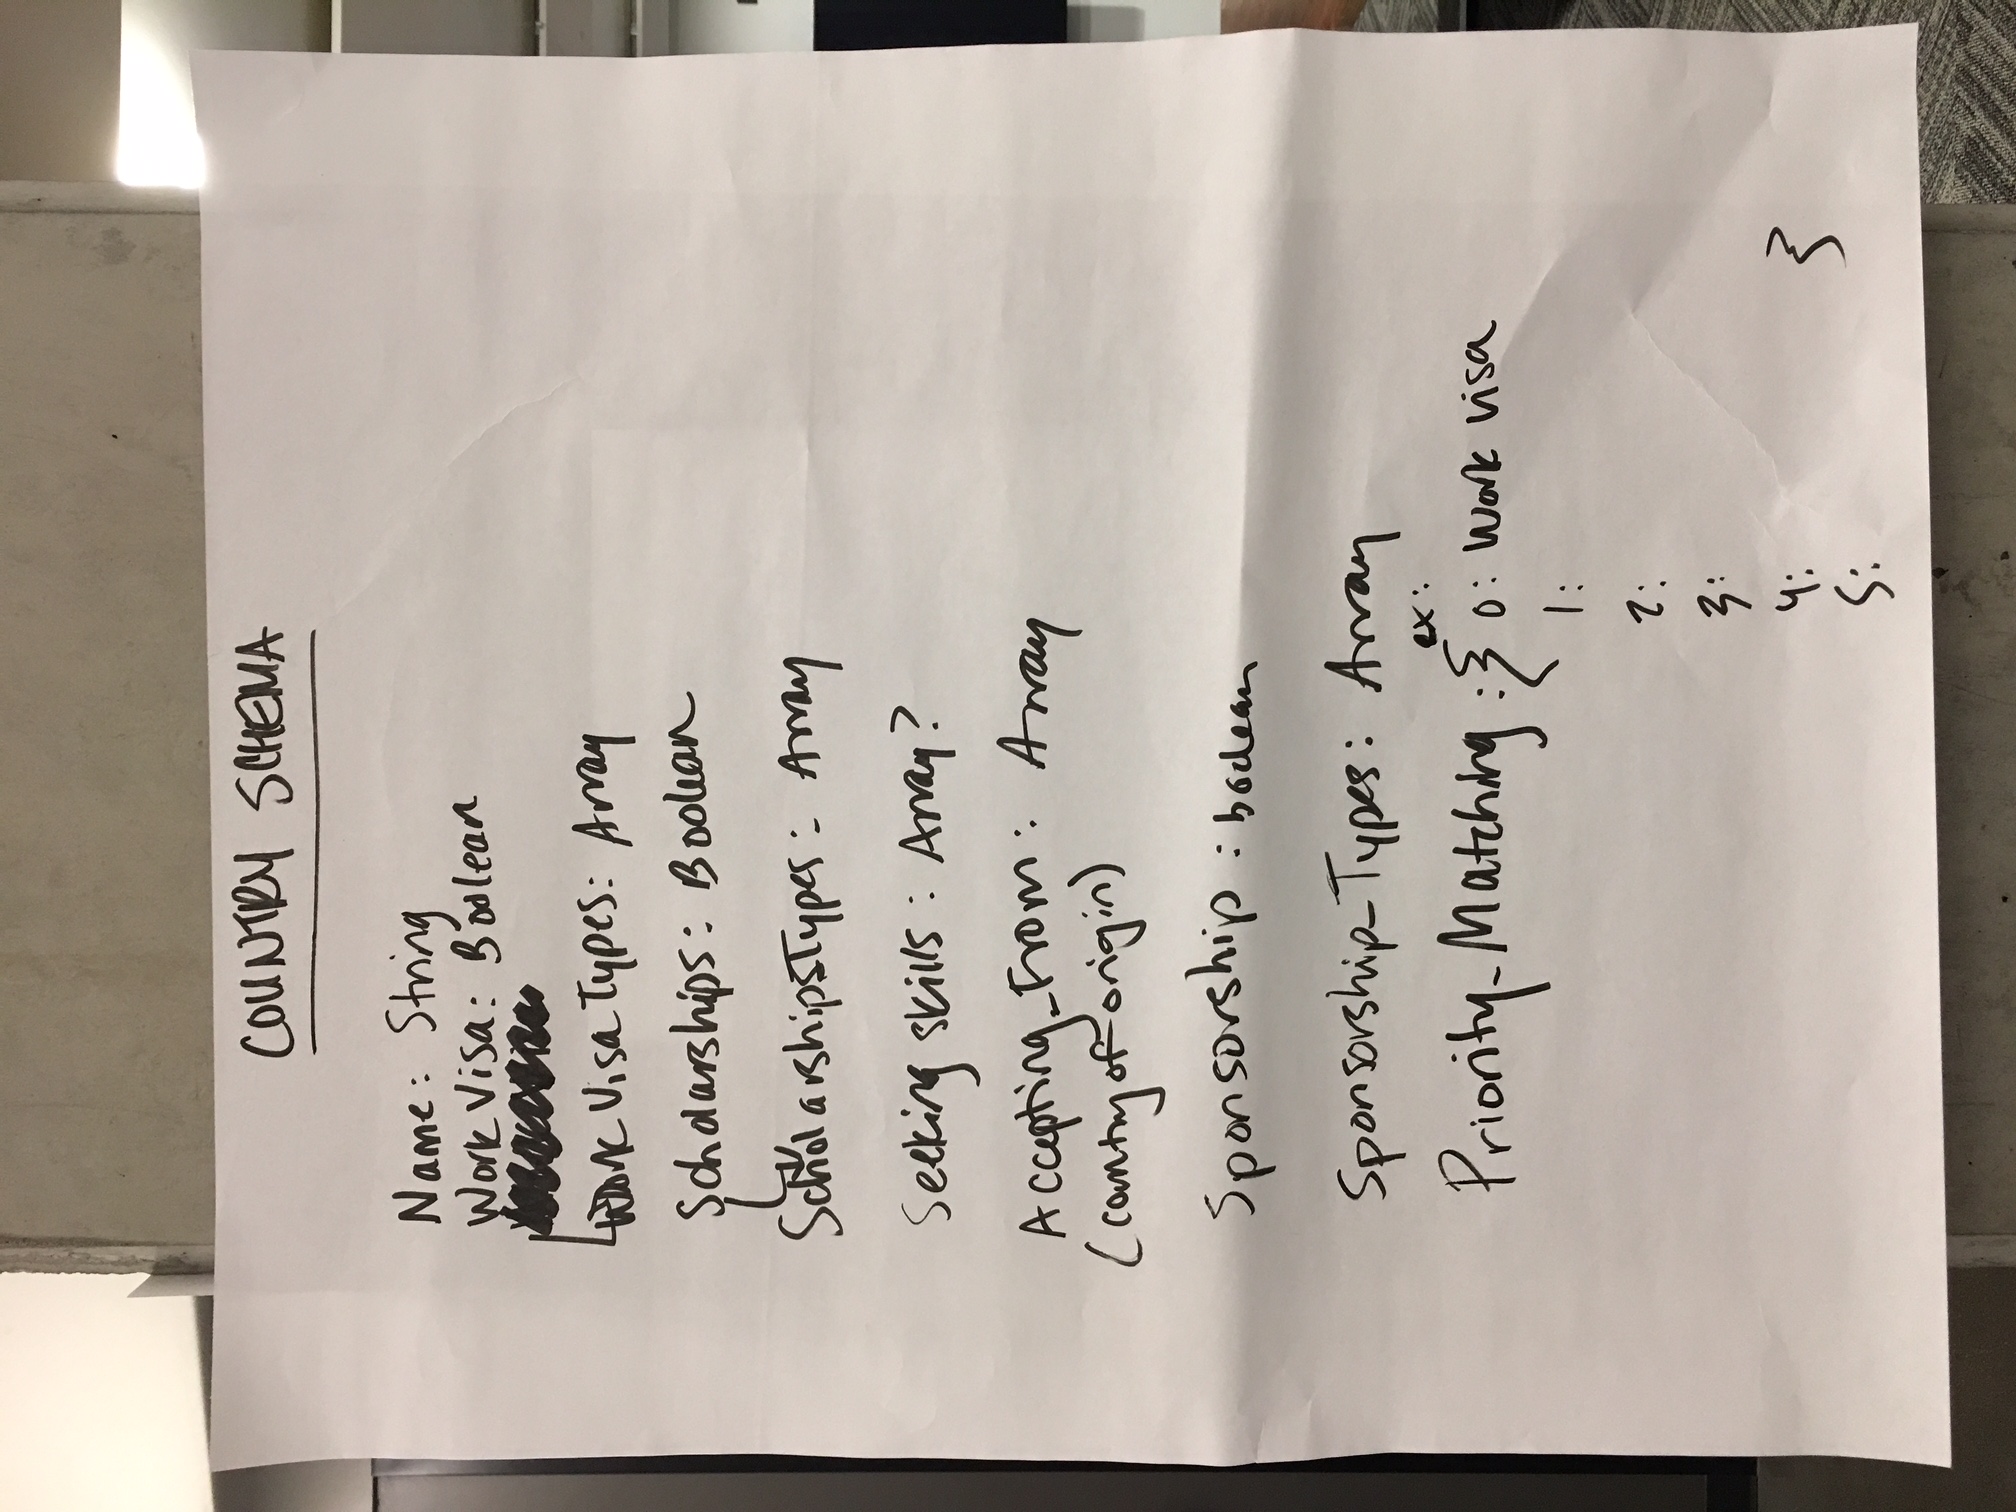 COUNTRY SCHEMA
Name: String
Work Visa: Boolean
Work Visa Types: Array
Scholarships: Boolean
Scholarships_Types: Array
Seeking skills: Array?
Accepting_From: Array
(country of origin)
Sponsorship: boolean
Sponsorship_Types: Array
ex:
Priority_Matching: { 0: Work visa
1:
2:
3:
4: }
5: